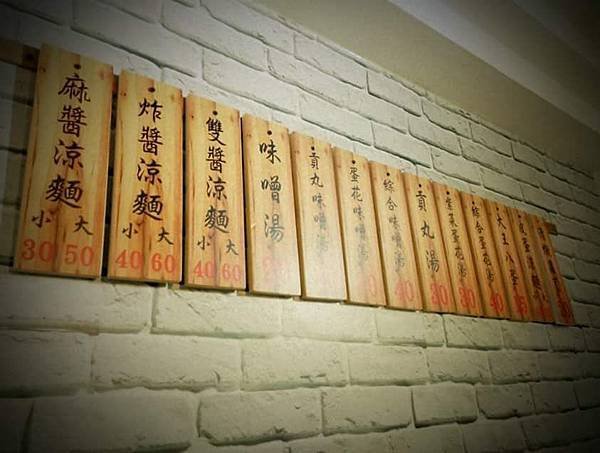 麻醬涼麵
小 大
30 50
炸醬涼麵
小 大
40 60
雙醬涼麵
小 大
40 60
味噌湯
貢丸味噌湯
蛋花味噌湯
綜合味噌湯
40
貢丸湯
30
紫菜蛋花湯
30
綜合蛋花湯
40